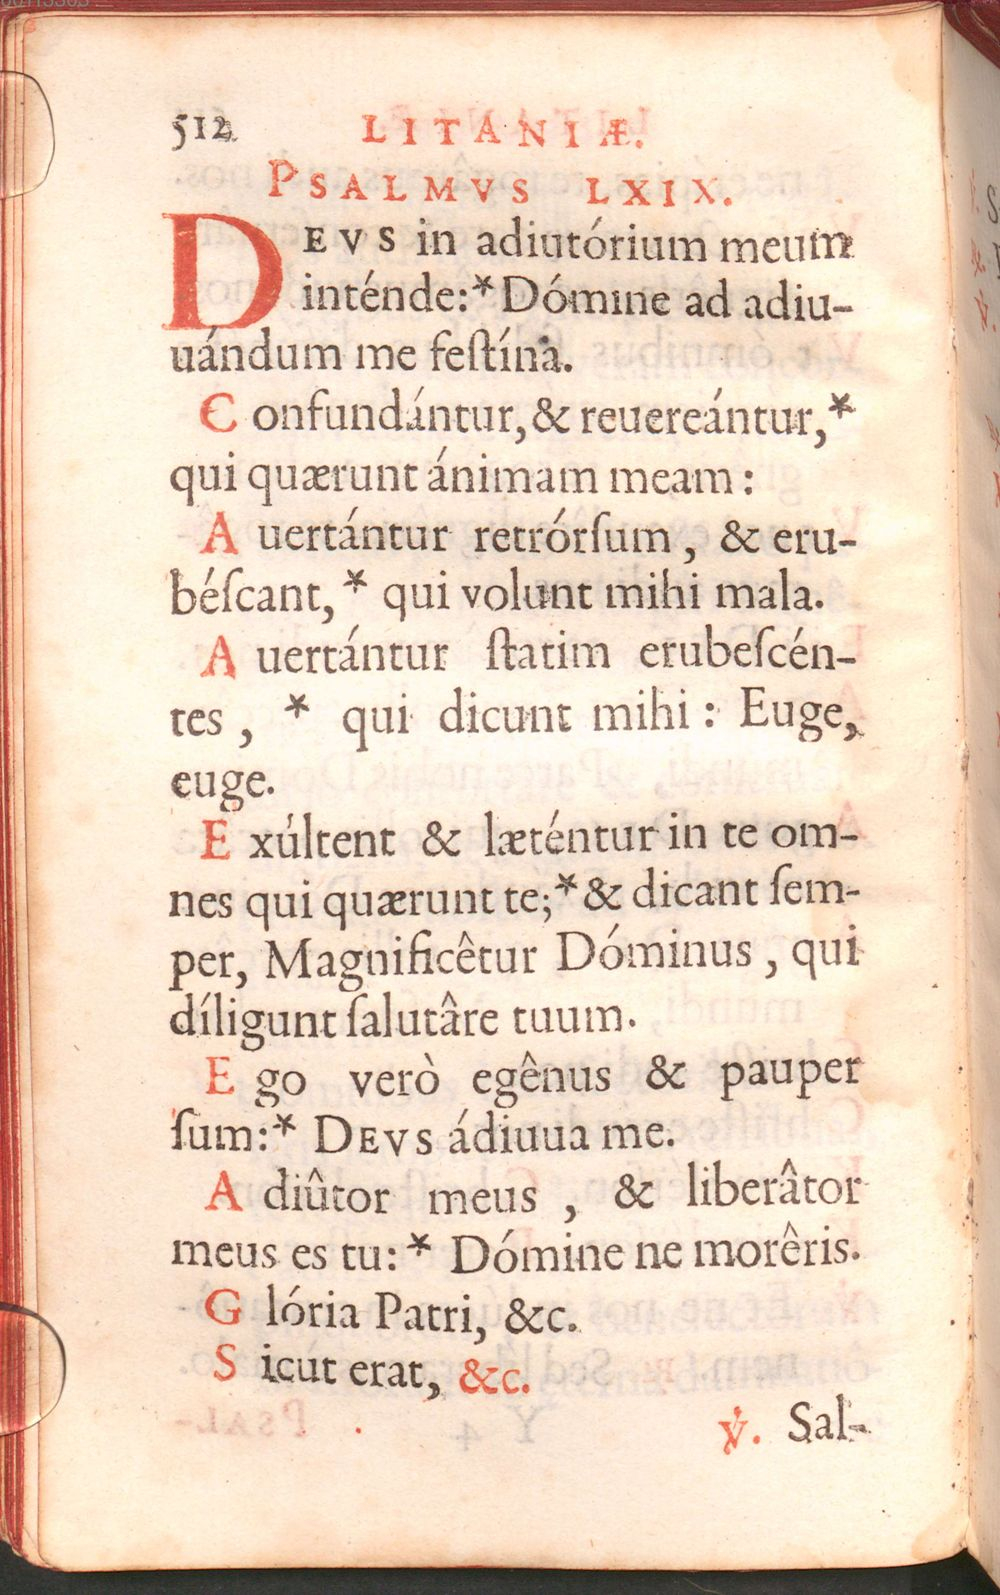 512 LITANIÆ.
PSALMVS LXIX.
DEVS in adiutórium meum
inténde:* Dómine ad adiu-
uándum me feſtína.
Confundántur, & reuereántur,*
qui quærunt ánimam meam:
Auertántur retrórſum, & eru-
béſcant,* qui volunt mihi mala.
Auertántur ſtatim erubeſcén-
tes, * qui dicunt mihi: Euge,
euge.
Exúltent & læténtur in te om-
nes qui quærunt te;* & dicant ſem-
per, Magnificêtur Dóminus, qui
díligunt ſalutâre tuum.
Ego verò egênus & pauper
ſum:* DEVS ádiuua me.
Adiûtor meus, & liberâtor
meus es tu:* Dómine ne morêris.
Glória Patri, &c.
Sicut erat, &c.
℣. Sal-